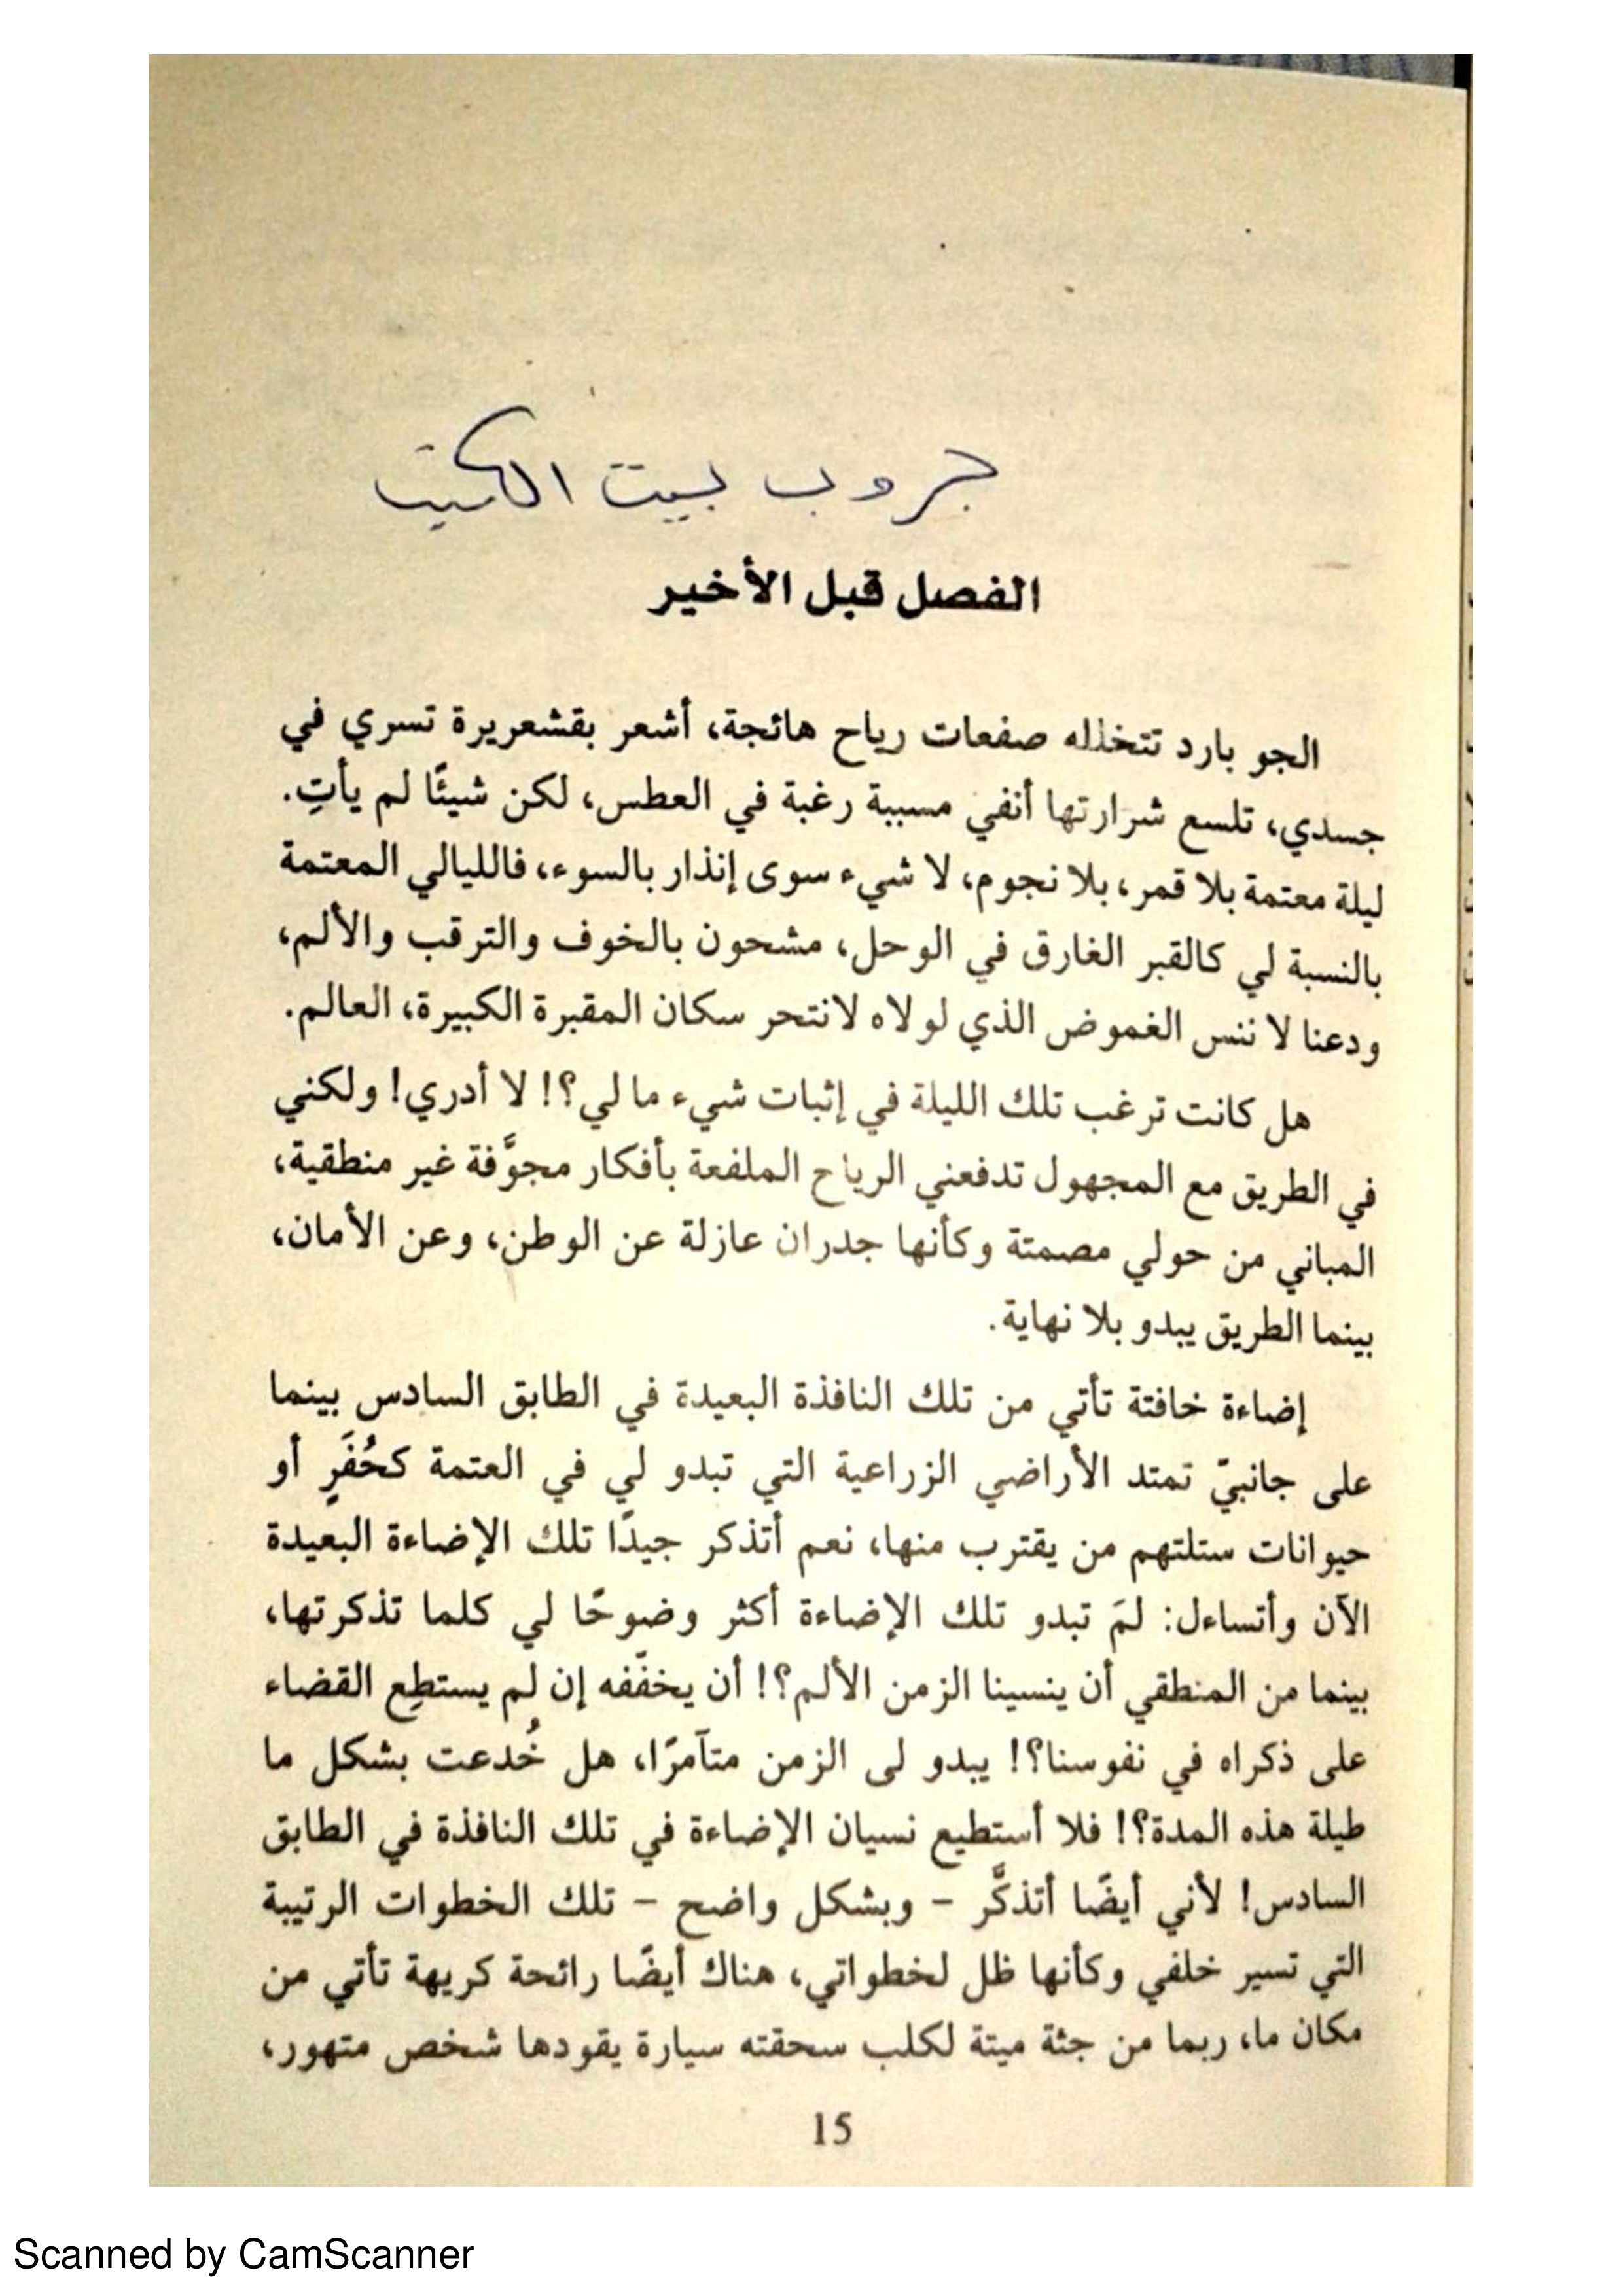 جروب بيت الكتب
الفصل قبل الأخير
الجو بارد تتخلله صفعات رياح هائجة، أشعر بقشعريرة تسري في
جسدي، تلسع شرارتها أنفي مسببة رغبة في العطس، لكن شيئًا لم يأتِ.
ليلة معتمة بلا قمر، بلا نجوم، لا شيء سوى إنذار بالسوء، فالليالي المعتمة
بالنسبة لي كالقبر الغارق في الوحل، مشحون بالخوف والترقب والألم،
ودعنا لا ننس الغموض الذي لولاه لانتحر سكان المقبرة الكبيرة، العالم.
هل كانت ترغب تلك الليلة في إثبات شيء ما لي؟! لا أدري! ولكني
في الطريق مع المجهول تدفعني الرياح الملفعة بأفكار مجوَّفة غير منطقية،
المباني من حولي مصمتة وكأنها جدران عازلة عن الوطن، وعن الأمان،
بينما الطريق يبدو بلا نهاية.
إضاءة خافتة تأتي من تلك النافذة البعيدة في الطابق السادس بينما
على جانبيّ تمتد الأراضي الزراعية التي تبدو لي في العتمة كحُفَرٍ أو
حيوانات ستلتهم من يقترب منها، نعم أتذكر جيدًا تلك الإضاءة البعيدة
الآن وأتساءل: لمَ تبدو تلك الإضاءة أكثر وضوحًا لي كلما تذكرتها،
بينما من المنطقي أن ينسينا الزمن الألم؟! أن يخفّفه إن لم يستطِع القضاء
على ذكراه في نفوسنا؟! يبدو لى الزمن متآمرًا، هل خُدعت بشكل ما
طيلة هذه المدة؟! فلا أستطيع نسيان الإضاءة في تلك النافذة في الطابق
السادس! لأني أيضًا أتذكَّر – وبشكل واضح – تلك الخطوات الرتيبة
التي تسير خلفي وكأنها ظل لخطواتي، هناك أيضًا رائحة كريهة تأتي من
مكان ما، ربما من جثة ميتة لكلب سحقته سيارة يقودها شخص متهور،
15
Scanned by CamScanner